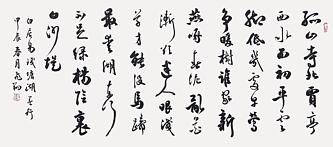 孤山寺北賈亭
西水面初平雲
脚低幾處早鶯
争暖樹誰家新
燕啄春泥亂花
漸欲迷人眼淺
草才能没馬蹄
最愛湖東行
不足綠楊陰裏
白沙堤
白居易錢塘湖春行
甲辰春月